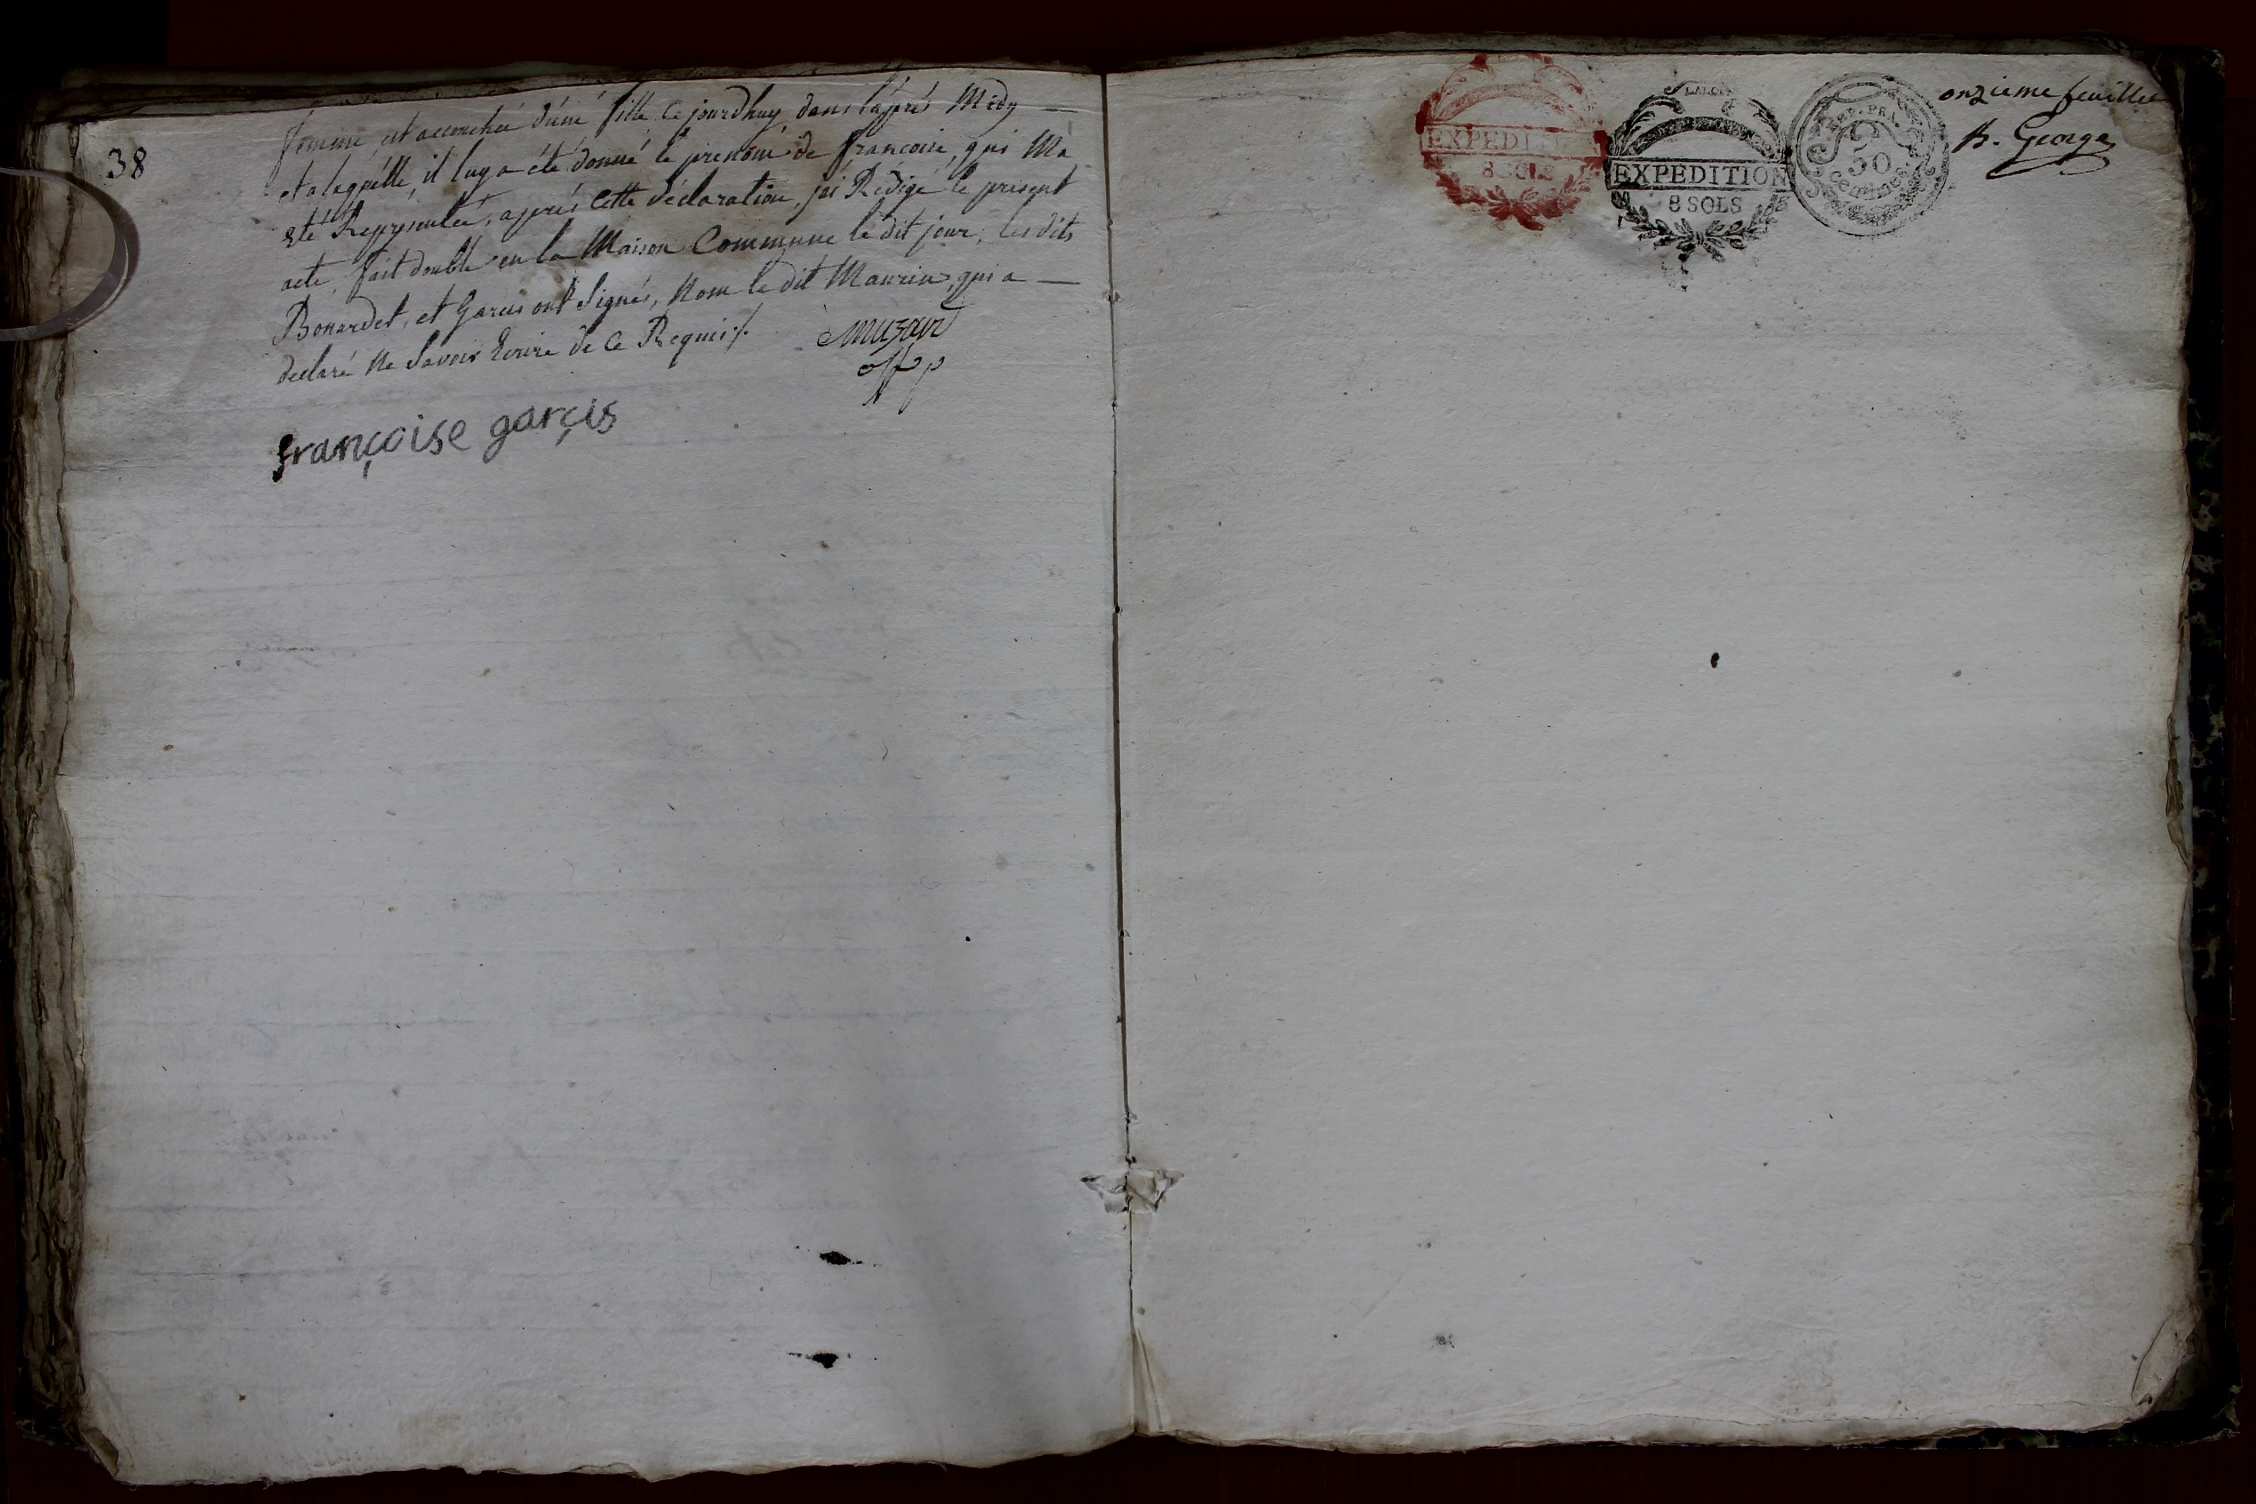 38
femme, est accouchée d'une fille ce jourdhuy dans l'après Midy
et a laquelle, il luy a été donné le prenom de francoise, qui Ma
eté Représentée, après Cette déclaration, jai Rédigé le présent
acte, fait double en la Maison Commune le dit jour, les dits
Bonardet, et Garcis ont Signés, Non le dit Maurin, qui a
declaré Ne Savoir Ecrire de Ce Requis /.
Muzayr
off p
françoise garçis
EXPEDITION
8 SOLS
LA LOI
EXPEDITION
8 SOLS
REP. FRA.
50
Centimes
onzieme feuillet
B. George